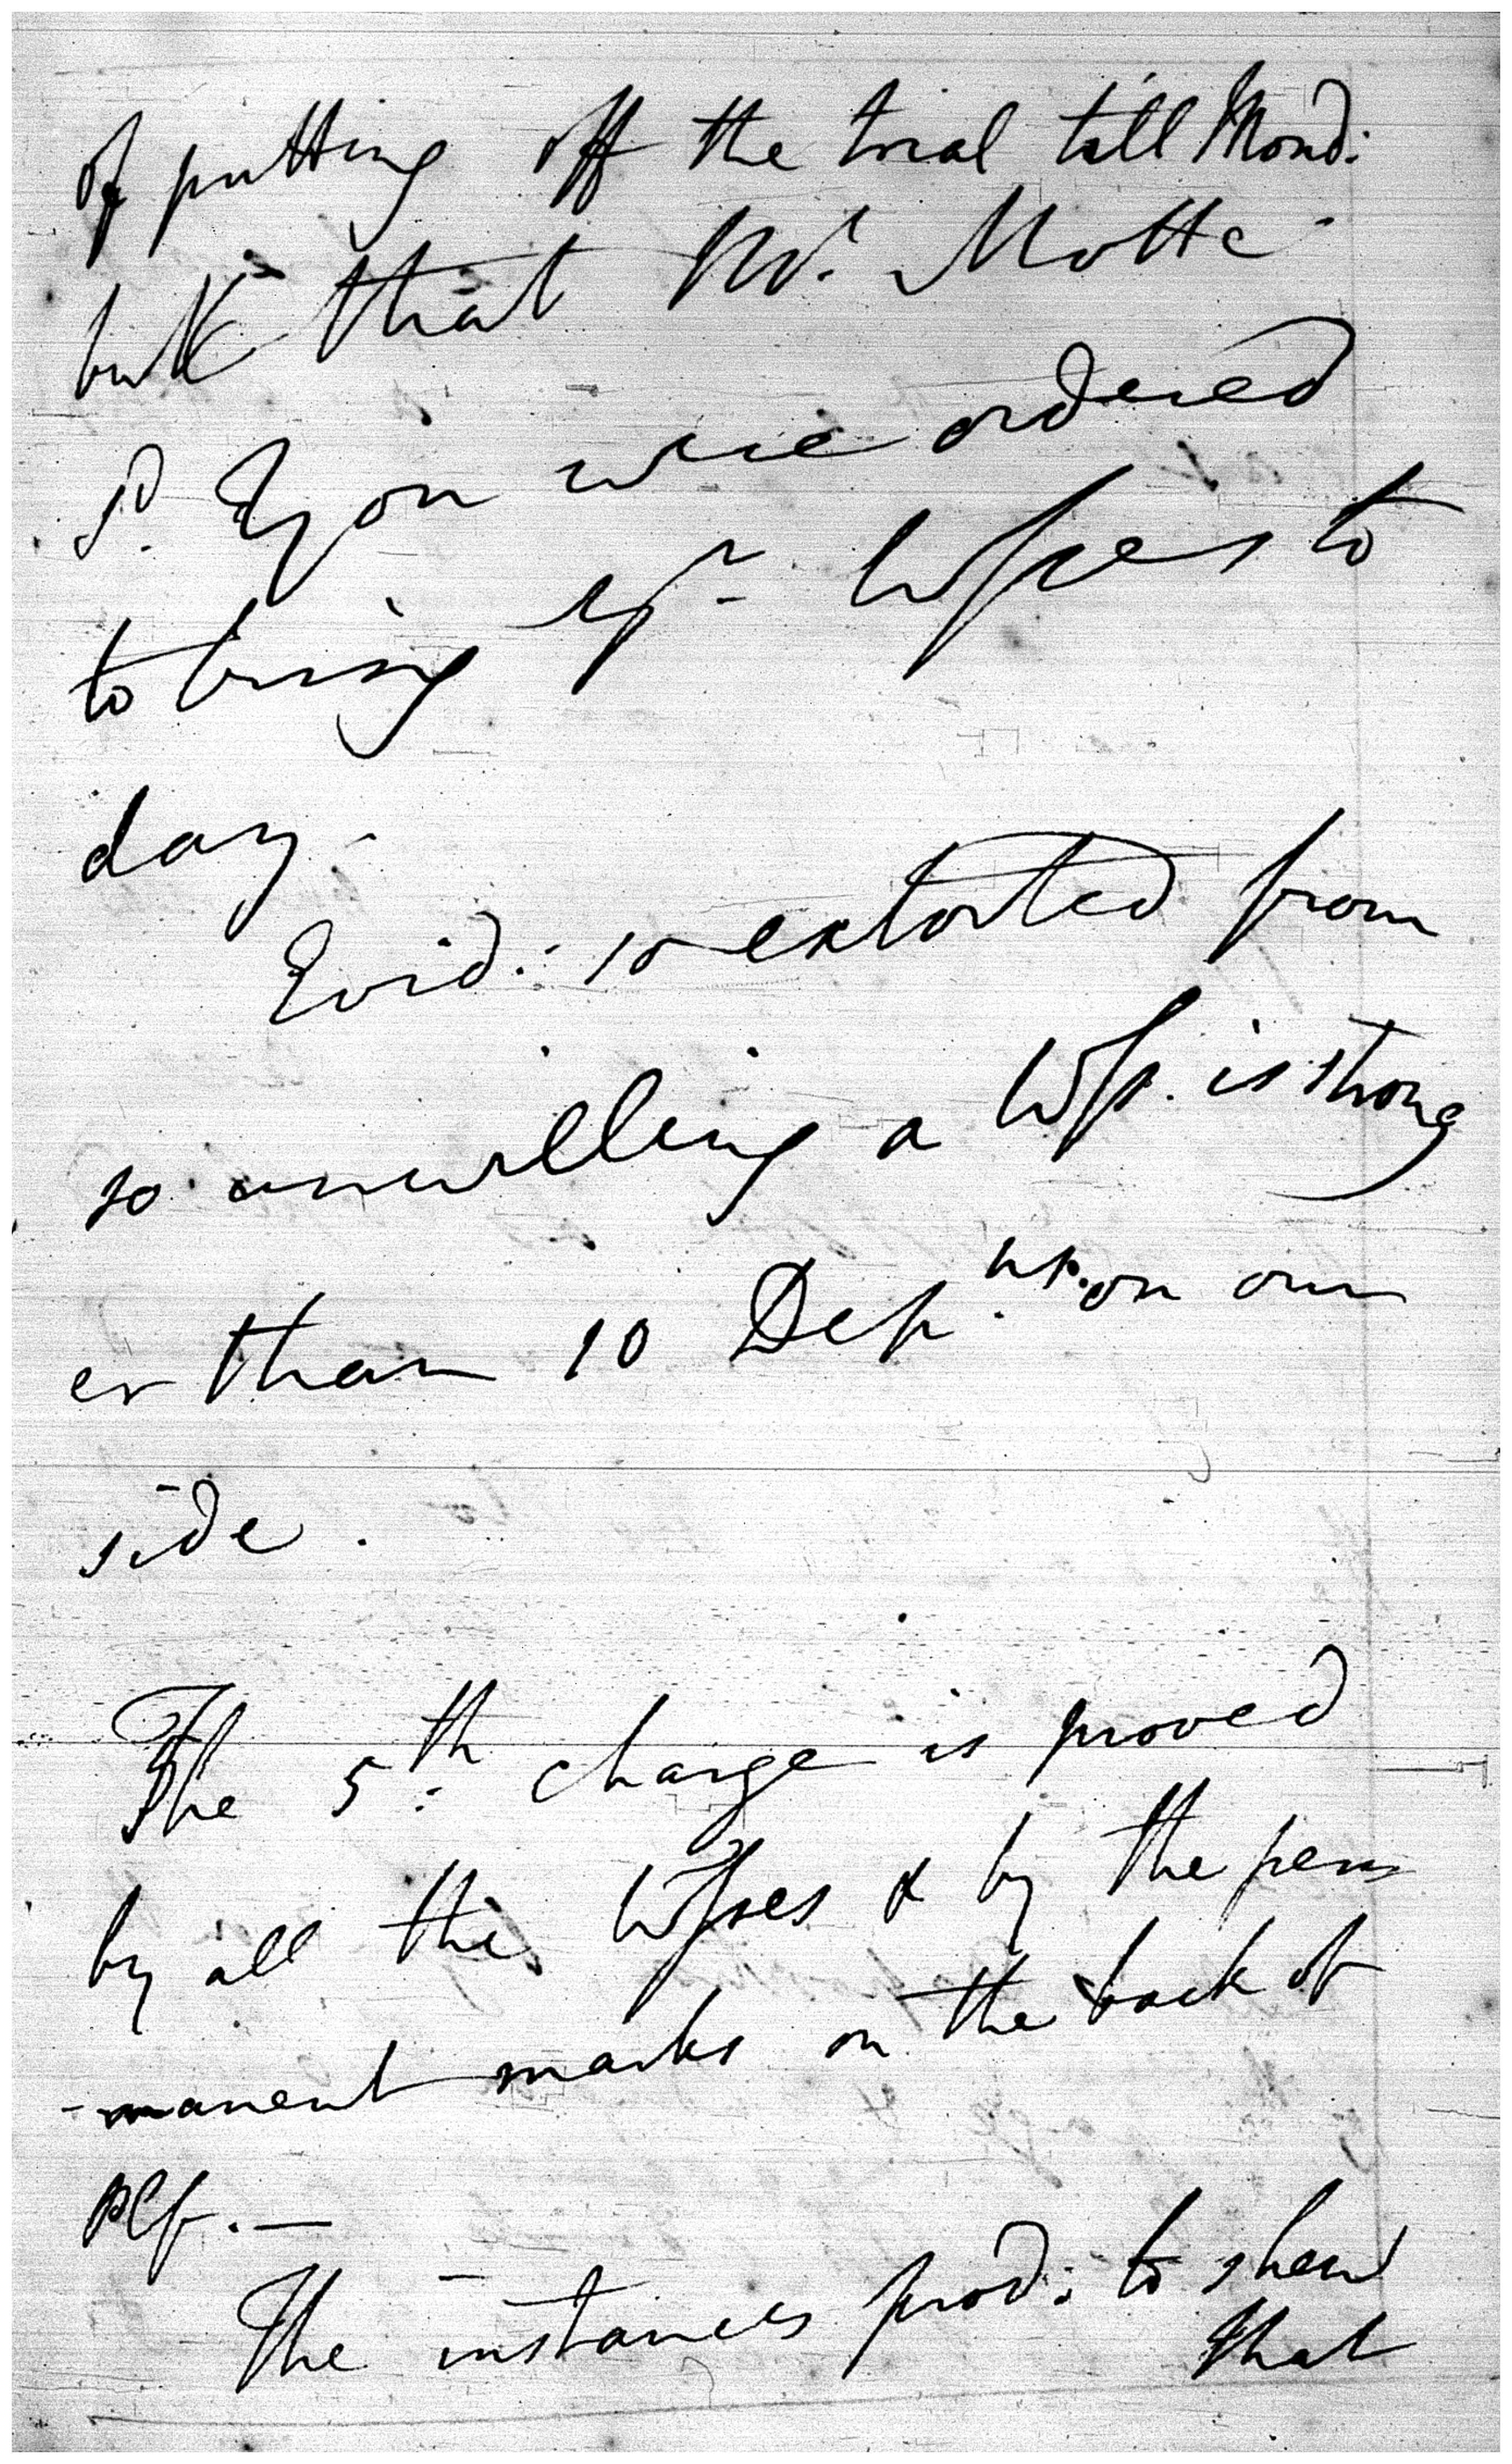 of putting off the trial till Mond:
but that Mr. Motte
sd. Eyou were ordered
to bring yr. Wsses to
day.
Evid: so extorted from
so unwilling a Wss. is strong
er than 10 Dep.nts. on our
side.
The 5th: charge is proved
by all the Wsses & by the per
-manent marks on the back of
Plf. —
The instances prod: to shew
that